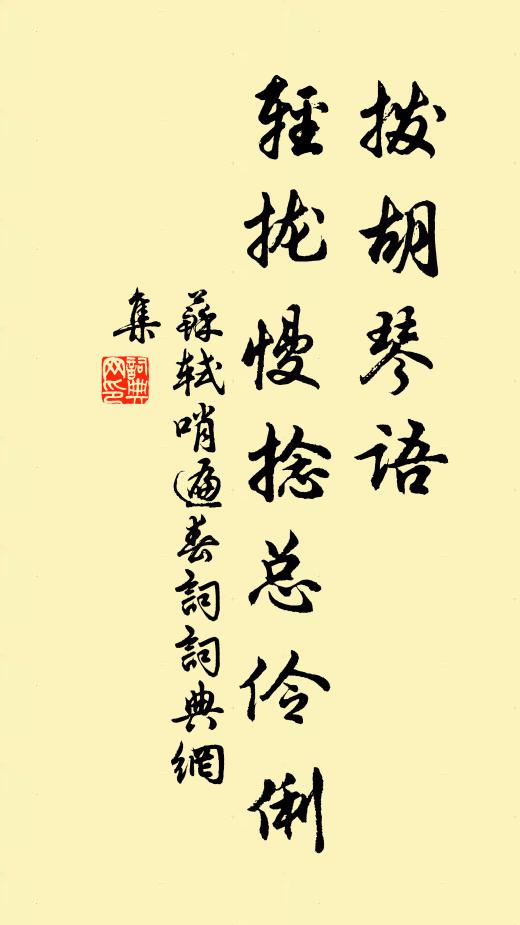 拨胡琴语
輕拢慢捻总伶俐
蘇軾哨遍春詞詞典網
集
詞典网印